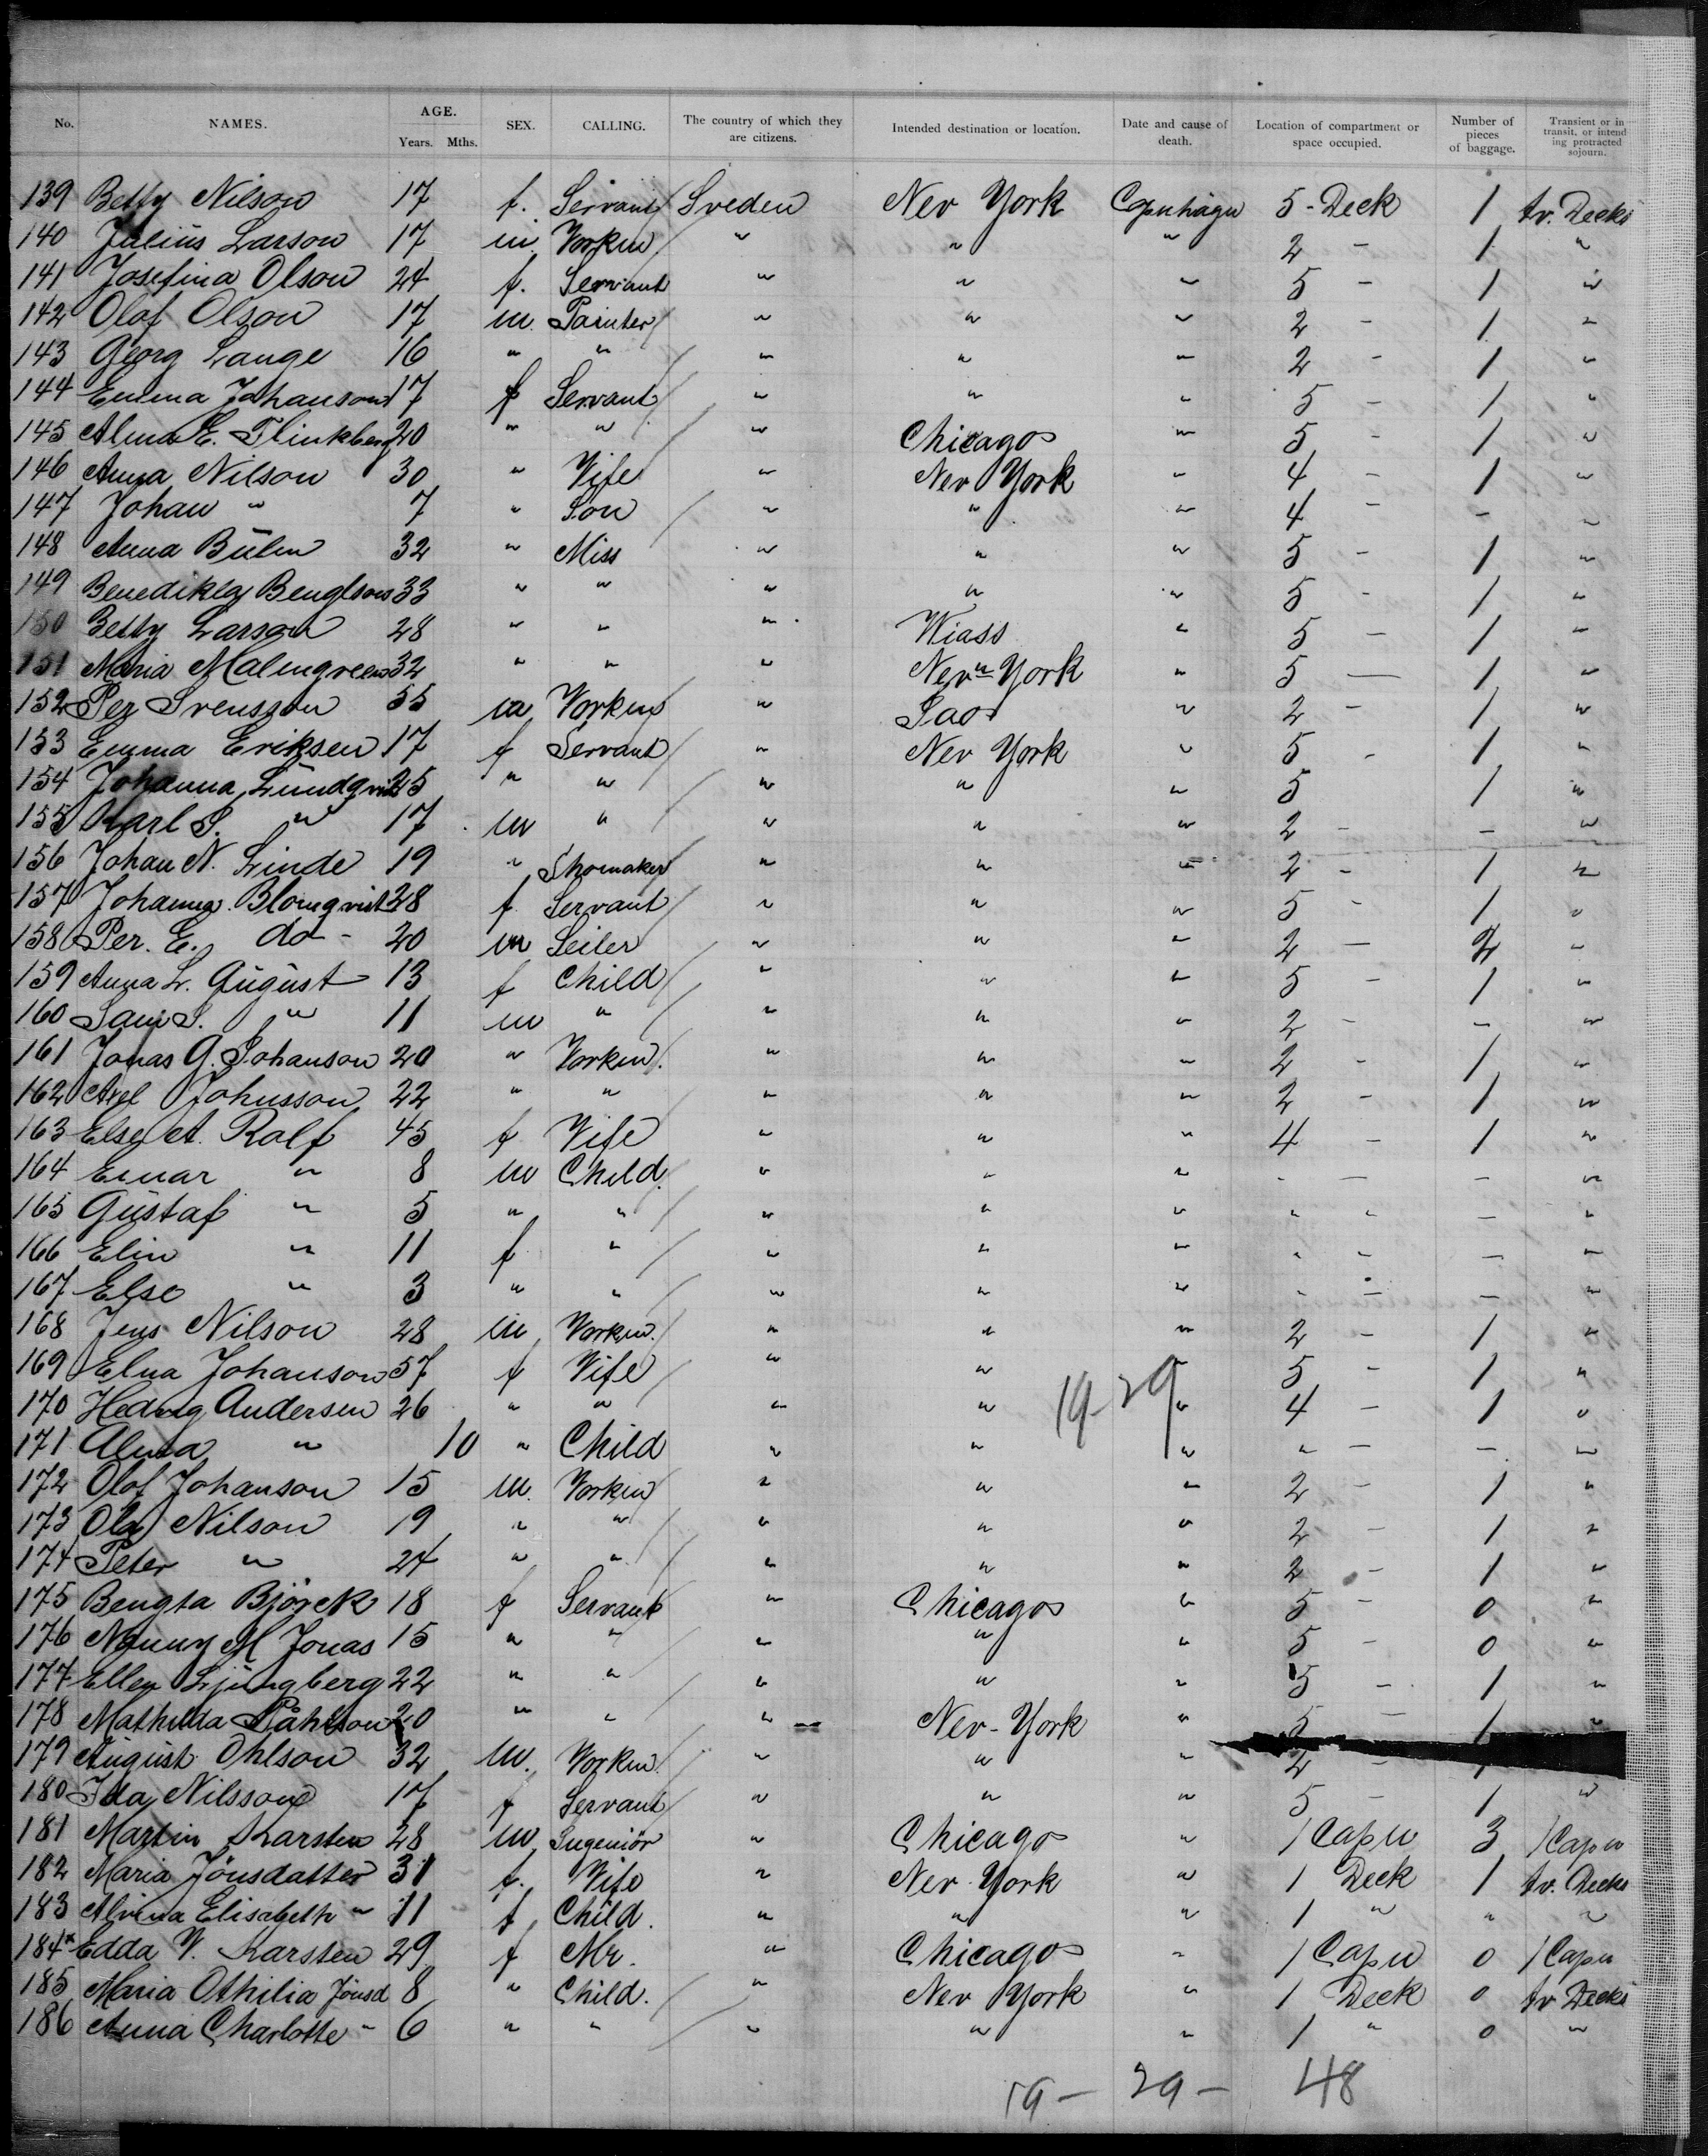 No. NAMES. AGE. Years. Mths. SEX. CALLING. The country of which they are citizens. Intended destination or location. Date and cause of death. Location of compartment or space occupied. Number of pieces of baggage. Transient or in transit, or intend ing protracted sojourn.
139 Betty Nilson 17 f. Servant Sveden Nev York Copenhagen 5 - Deck 1 tv. Decks
140 Julius Larson 17 m. Vorkm " " " 2 - 1 "
141 Josefina Olson 24 f. Servant " " " 5 - 1 "
142 Olof Olson 17 m. Painter " " " 2 - 1 "
143 Georg Lange 16 " " " " " 2 - 1 "
144 Emma Johanson 17 f Servant " " " 5 - 1 "
145 Alma E. Flinkberg 20 " " " Chicago " 5 - 1 "
146 Anna Nilson 30 " Vife " Nev York " 4 - 1 "
147 Johan " 7 " Son " " " 4 - - "
148 Anna Bülm 32 " Miss " " " 5 - 1 "
149 Benedikta Bengtson 33 " " " " " 5 - 1 "
150 Betty Larson 28 " " " " 5 - 1 "
151 Maria Malmgreen 32 " " " Nev York " 5 - 1 "
152 Per Svensson 55 m Vorkm " " 2 - 1 "
153 Emma Eriksen 17 f Servant " Nev York " 5 - 1 "
154 Johanna Lundqvist 25 " " " " " 5 1 "
155 Karl S. " 17 m " " " " 2 - - "
156 Johan N. Linde 19 " Shomaker " " " 2 - 1 "
157 Johanna Blomqvist 28 f Servant " " " 5 - 1 "
158 Per. E. do - 20 m Seiler " " " 2 - 2 "
159 Anna L. August 13 f Child " " " 5 - 1 "
160 S. " 11 m " " " " 2 - - "
161 Jonas G. Johanson 20 " Vorkm. " " " 2 - 1 "
162 Axel Johnsson 22 " " " " " 2 - 1 "
163 Else A. Ralf 45 f Vife " " " 4 - 1 "
164 Einar " 8 m Child. " " " - - - "
165 Gustaf " 5 " " " " " " " - "
166 Elin " 11 f " " " " " - - "
167 Else " 3 " " " " " " - - "
168 Jens Nilson 28 m Vorkm. " " " 2 - 1 "
169 Elna Johanson 57 f Vife " " " 5 - 1 "
170 Hedvig Andersen 26 " " " " 19-29 " 4 - 1 "
171 Alma " 10 " Child " " " " - - "
172 Olof Johanson 15 m. Vorkm " " " 2 - 1 "
173 Ola Nilson 19 " " " " " 2 - 1 "
174 Peter " 24 " " " " " 2 - 1 "
175 Bengta Björck 18 f Servant " Chicago " 5 - 0 "
176 Nanny M Jonas 15 " " " " " 5 - 0 "
177 Ellen Ljungberg 22 " " " " " 5 - 1 "
178 Mathilda Påhlson 20 " " " Nev-York " 5 - 1 "
179 August Ohlson 32 m. Vorkm. " " " 2 - 1
180 Ida Nilsson 17 f Servant " " " 5 - 1 "
181 Martin Karsten 28 m Ingeniör " Chicago " 1 Capu 3 1 Capu
182 Maria Jönsdatter 31 f. Vife " Nev York " 1 Deck 1 tv. Decks
183 Alvina Elisabeth " 11 f Child. " " " 1 " " "
184 Edda V. Karsten 29 f Mr. " Chicago " 1 Capu 0 1 Capu
185 Maria Othilia Jönsd 8 " Child. " Nev York " 1 Deck 0 tv Decks
186 Anna Charlotte " 6 " " " " " 1 " 0 "
19 - 29 - 48